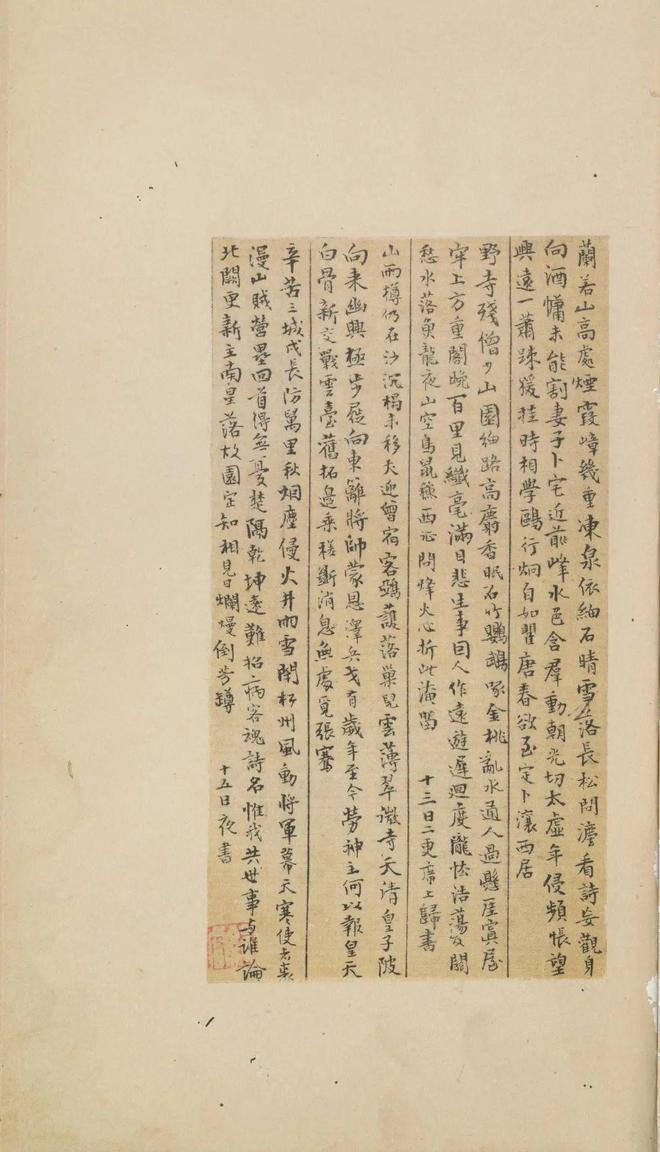 蘭若山高處煙霞嶂幾重凍泉依細石晴雪落長松問灋看詩妄觀身
向酒慵未能割妻子卜宅近前峰水色含羣動朝光切太虛年侵頻悵望
興遠一蕭疎猨挂時相學鷗行炯自如瞿唐春欲至定卜瀼西居
野寺殘僧少山園細路高麝香眠石竹鸚鵡啄金桃亂水通人過懸崖寘屋
牢上方重閣晚百里見纖毫滿目悲生事因人作遠遊遲迴度隴怯浩蕩及關
愁水落魚龍夜山空鳥鼠秋西征問烽火心折此淹留 十三日二更席上歸書
山雨樽仍在沙沉榻未移犬迎曾宿客鴉護落巢兒雲薄翠微寺天清皇子陂
向來幽興極步屧向東籬將帥蒙恩澤兵戈有歲年至今勞神主何以報皇天
白骨新交戰雲臺舊拓邊乘槎斷消息無處覓張騫
辛苦三城戍長防萬里秋烟塵侵火井雨雪閉松州風動將軍幕天寒使者裘
漫山賊營壘回首得無憂楚隔乾坤遠難招病客魂詩名惟我共世事与誰論
北闕更新主南星落故園定知相見日爛熳倒芳罇 十五日夜書